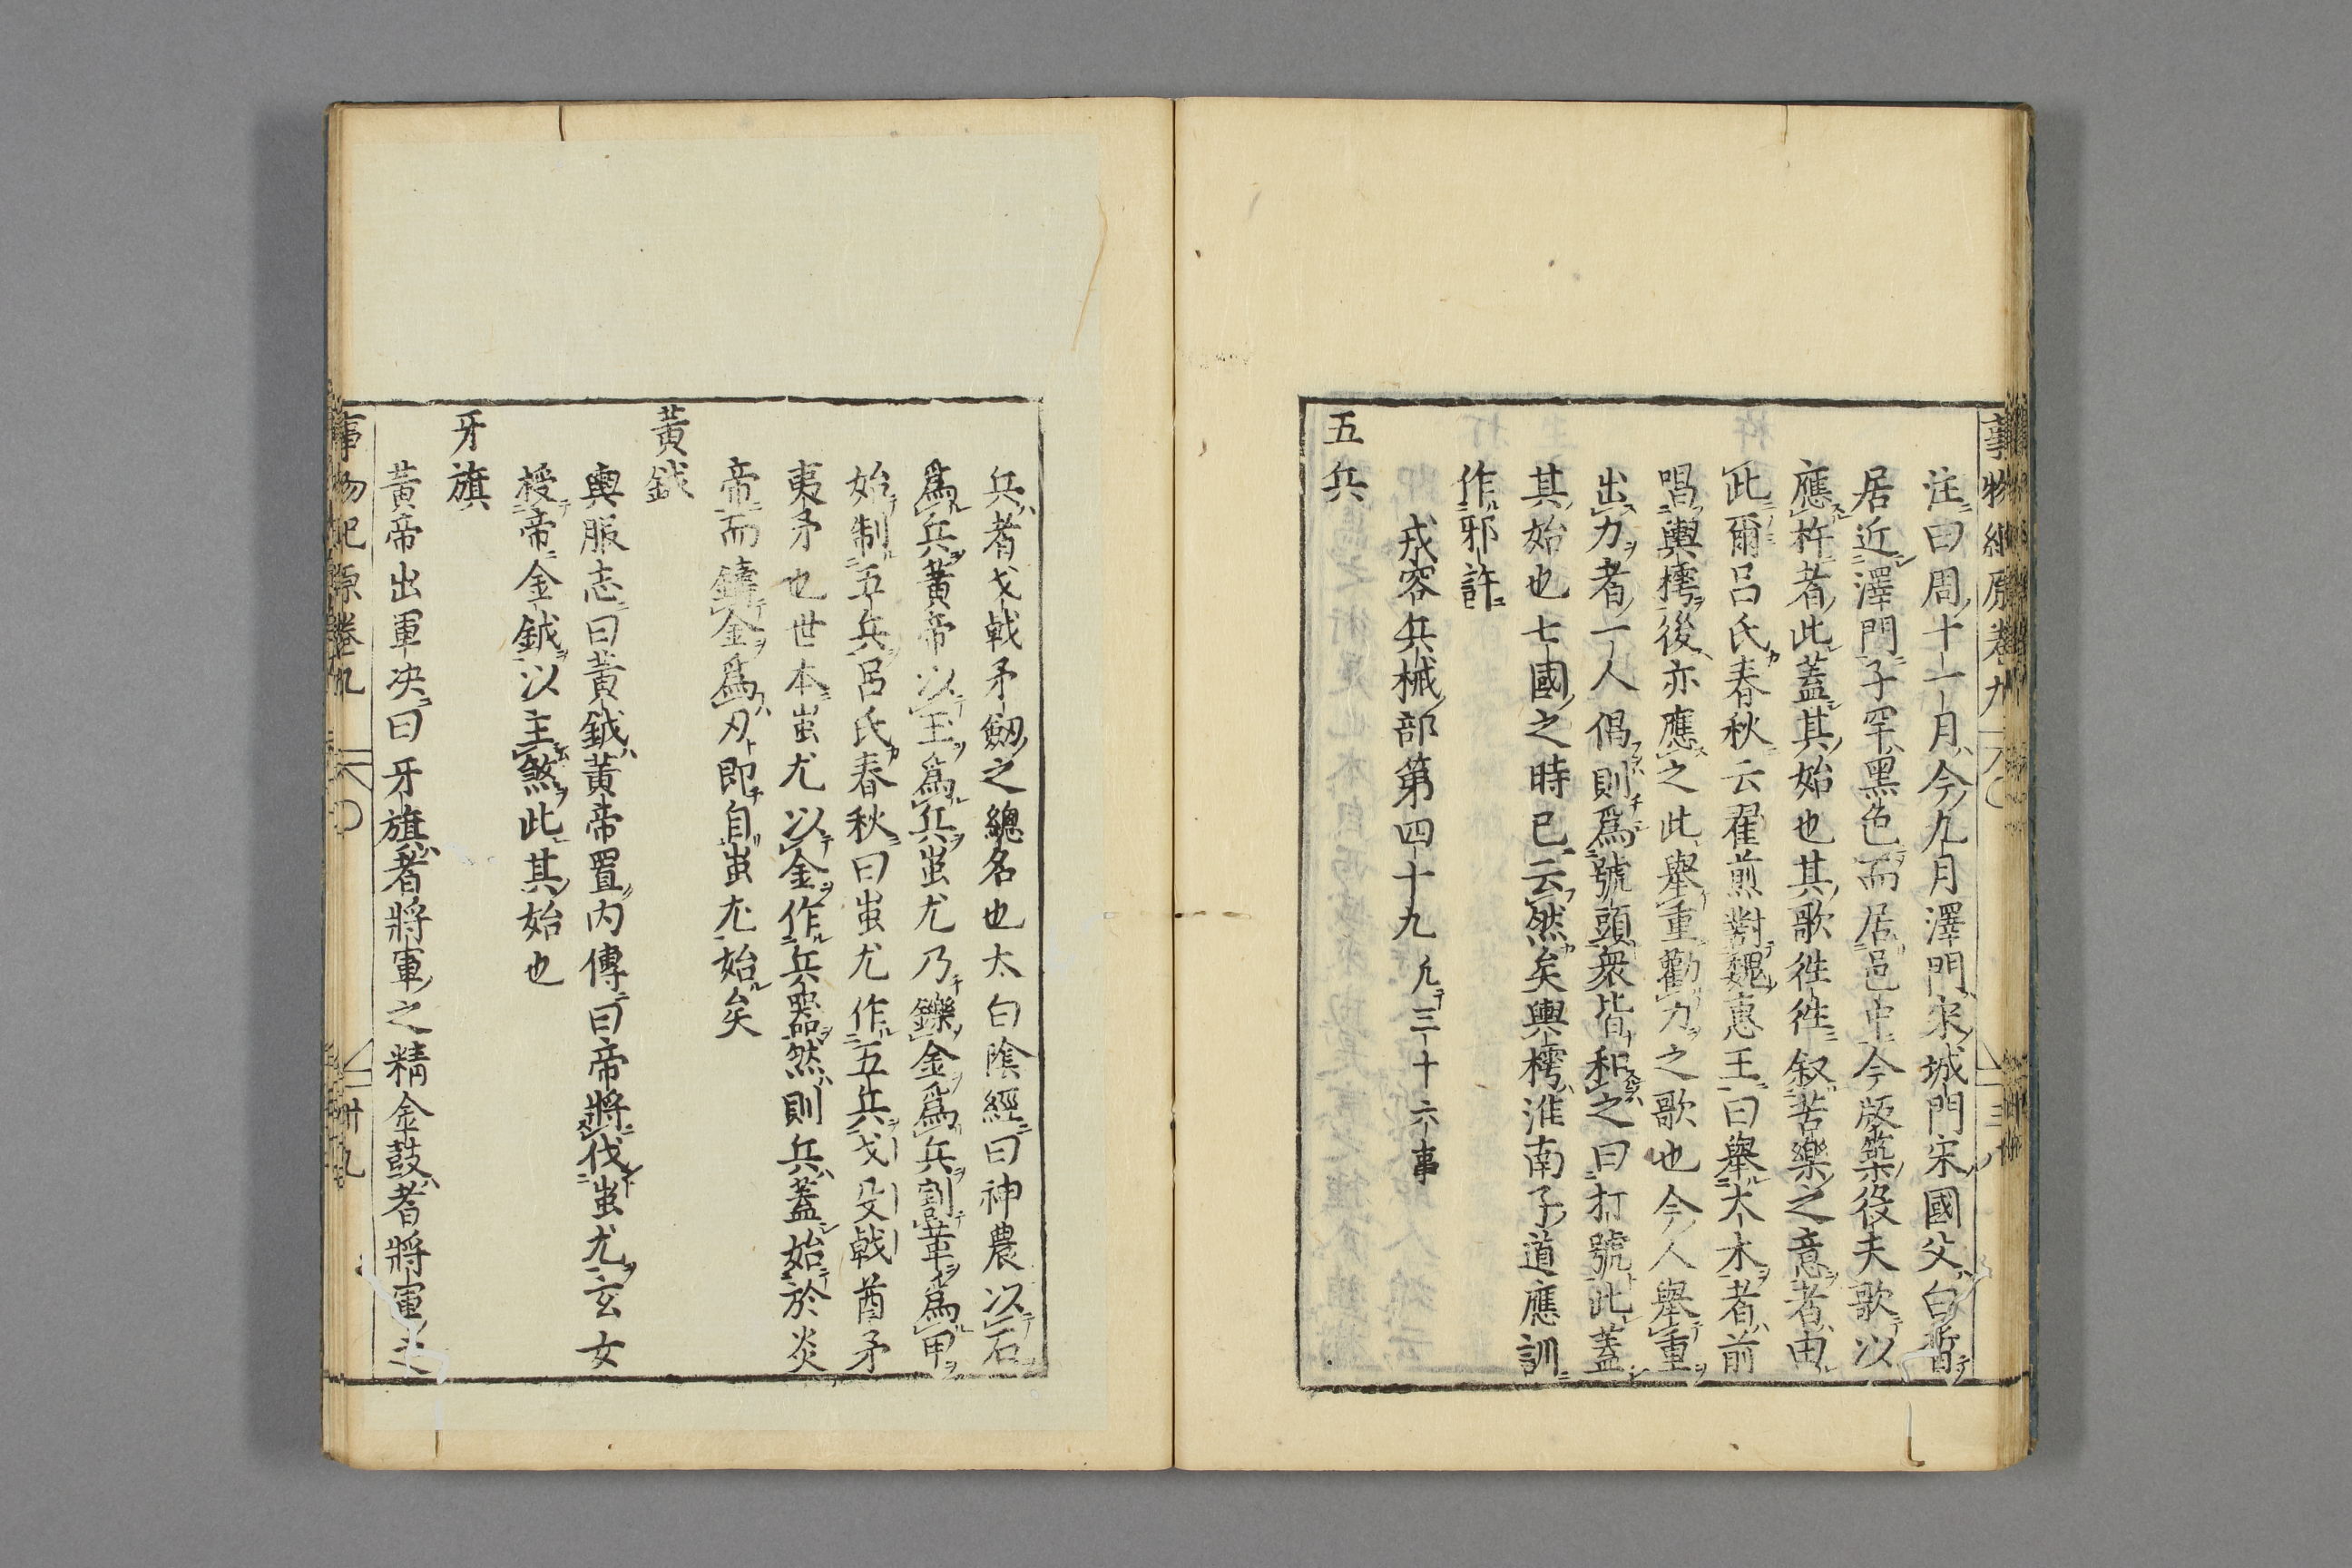 事物紀原卷九 三八
注曰周十一月今九月澤門宋城門宋國父白晳
居近澤門子罕黑色而居邑中今版築役夫歌以
應杵者此蓋其始也其歌徃徃叙苦樂之意者由
此爾呂氏春秋云翟煎對魏惠王曰舉大木者前
唱輿樗後亦應之此舉重勸力之歌也今人舉重
出力者一人倡則爲號頭衆皆和之曰打號此蓋
其始也七國之時已云然矣輿樗淮南子道應訓
作邪許
戎容兵械部第四十九 凡三十六事
五兵
兵者戈戟矛劔之總名也太白陰經曰神農以石
爲兵黃帝以玉爲兵蚩尤乃鑠金爲兵割革爲甲
始制五兵呂氏春秋曰蚩尤作五兵戈殳戟酋矛
夷矛也世本蚩尤以金作兵器然則兵蓋始於炎
帝而鑄金爲刃即自蚩尤始矣
黃鉞
輿服志曰黃鉞黃帝置內傳曰帝將伐蚩尤玄女
授帝金鉞以主煞此其始也
牙旗
黃帝出軍决曰牙旗者將軍之精金鼓者將軍之
事物紀原卷九 卅九